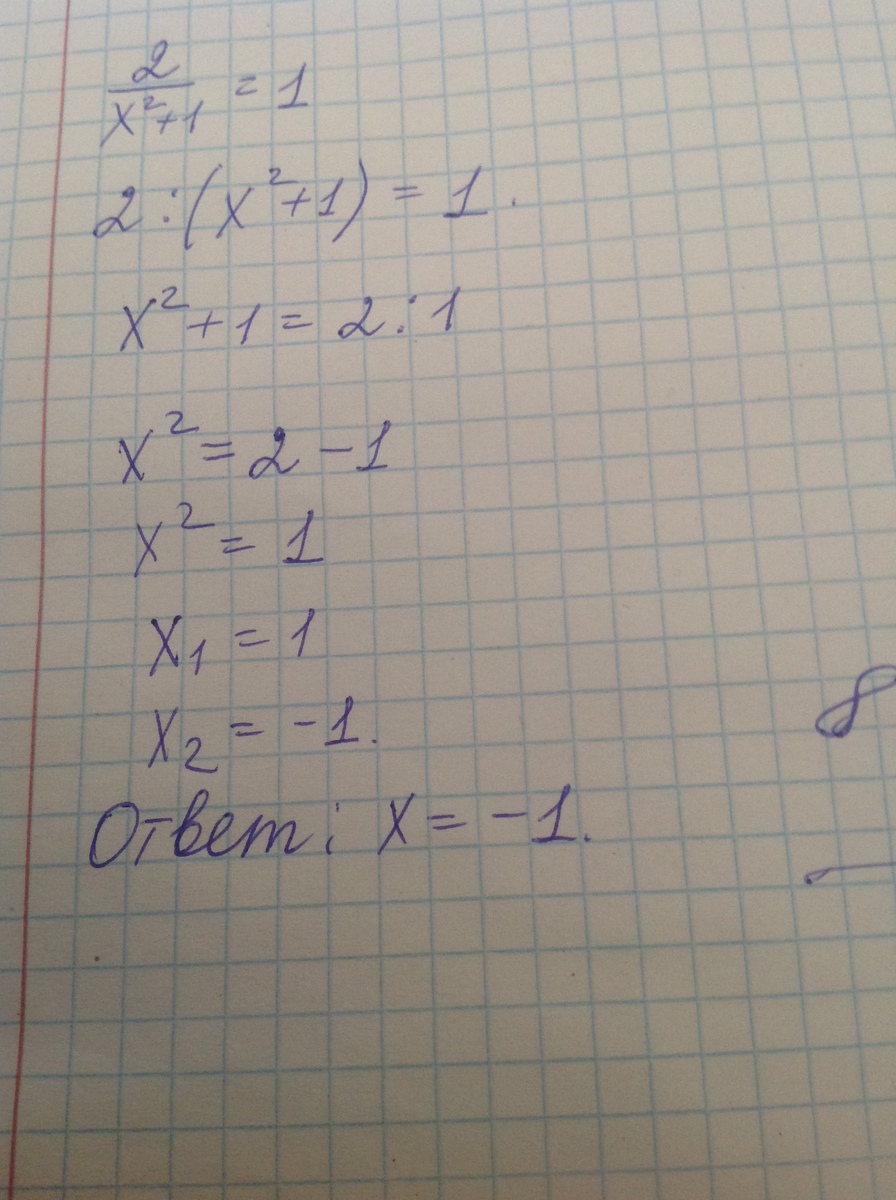 2/(x²+1) = 1
2 : (x² + 1) = 1.
x² + 1 = 2 : 1
x² = 2 - 1
x² = 1
x₁ = 1
x₂ = -1.
8
Ответ: x = -1.